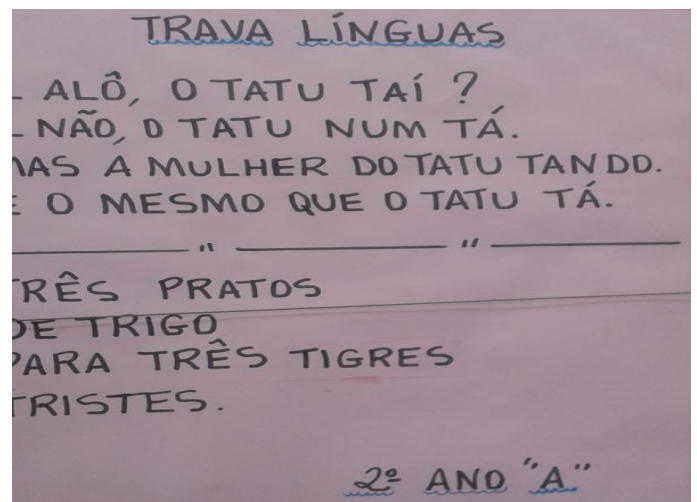 TRAVA LÍNGUAS
- ALÔ, O TATU TAÍ ?
- NÃO, O TATU NUM TÁ.
MAS A MULHER DO TATU TANDO.
É O MESMO QUE O TATU TÁ.
________ " ________ " ________
TRÊS PRATOS
DE TRIGO
PARA TRÊS TIGRES
TRISTES.
2º ANO "A"